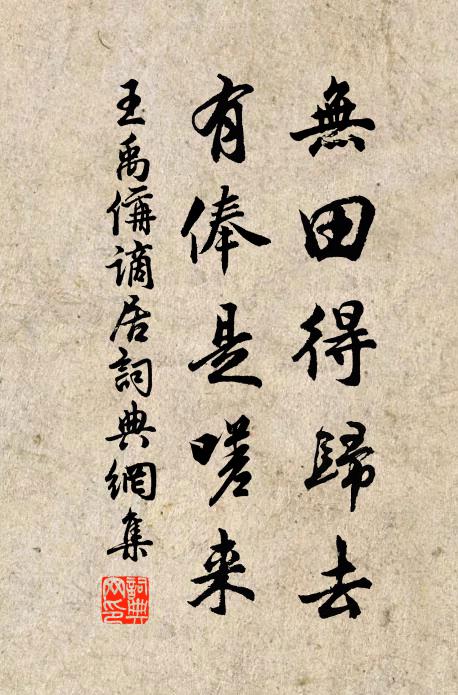 無田得歸去
有俸是嗟来
王禹偁謫居詞典網集
詞典网印